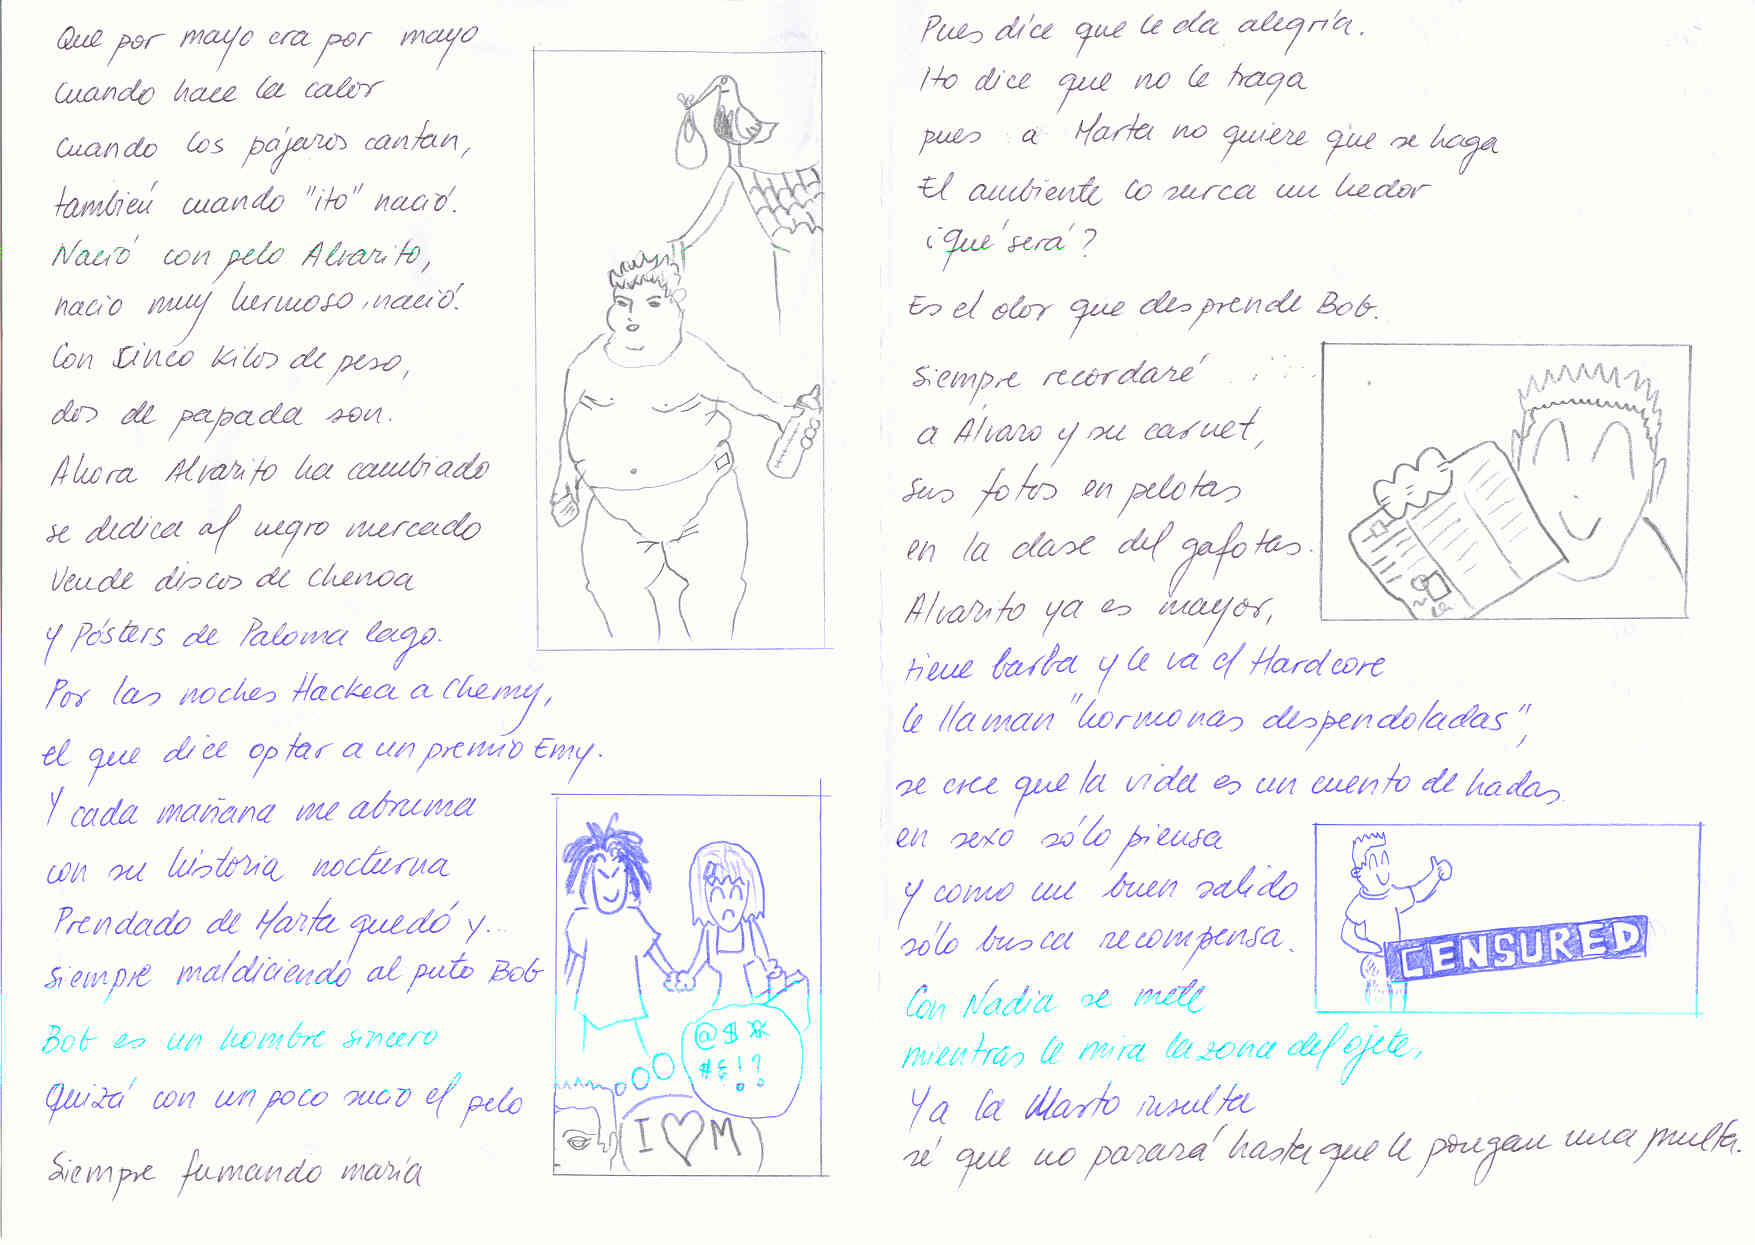 Que por mayo era por mayo
cuando hace la calor
cuando los pájaros cantan,
también cuando "ito" nació.
Nació con pelo Alvarito,
nacio muy hermoso, nació.
Con Sinco kilos de peso,
dos de papada son.
Ahora Alvarito ha cambiado
se dedica al negro mercado
Vende discos de Chenoa
y Pósters de Paloma lago.
Por las noches Hackea a Chemy,
el que dice optar a un premio Emy.
Y cada mañana me abruma
con su historia nocturna
Prendado de Marta quedó y...
siempre maldiciendo al puto Bob
Bob es un hombre sincero
Quizá con un poco sucio el pelo
Siempre fumando maría
@ $ *
# & ! ?
I ♡ M
Pues dice que le da alegría.
Ito dice que no le traga
pues a Marta no quiere que se haga
El ambiente lo surca un hedor
¿Qué será?
Es el olor que desprende Bob.
Siempre recordaré
a Álvaro y su carnet,
sus fotos en pelotas
en la clase del gafotas.
Alvarito ya es mayor,
tiene barba y le va el Hardcore
le llaman "hormonas despendoladas",
se cree que la vida es un cuento de hadas.
en sexo sólo piensa
y como un buen salido
sólo busca recompensa.
CENSURED
Con Nadia se mete
mientras le mira la zona del ojete,
Ya la Marto insulta
sé que no parará hasta que le pongan una multa.